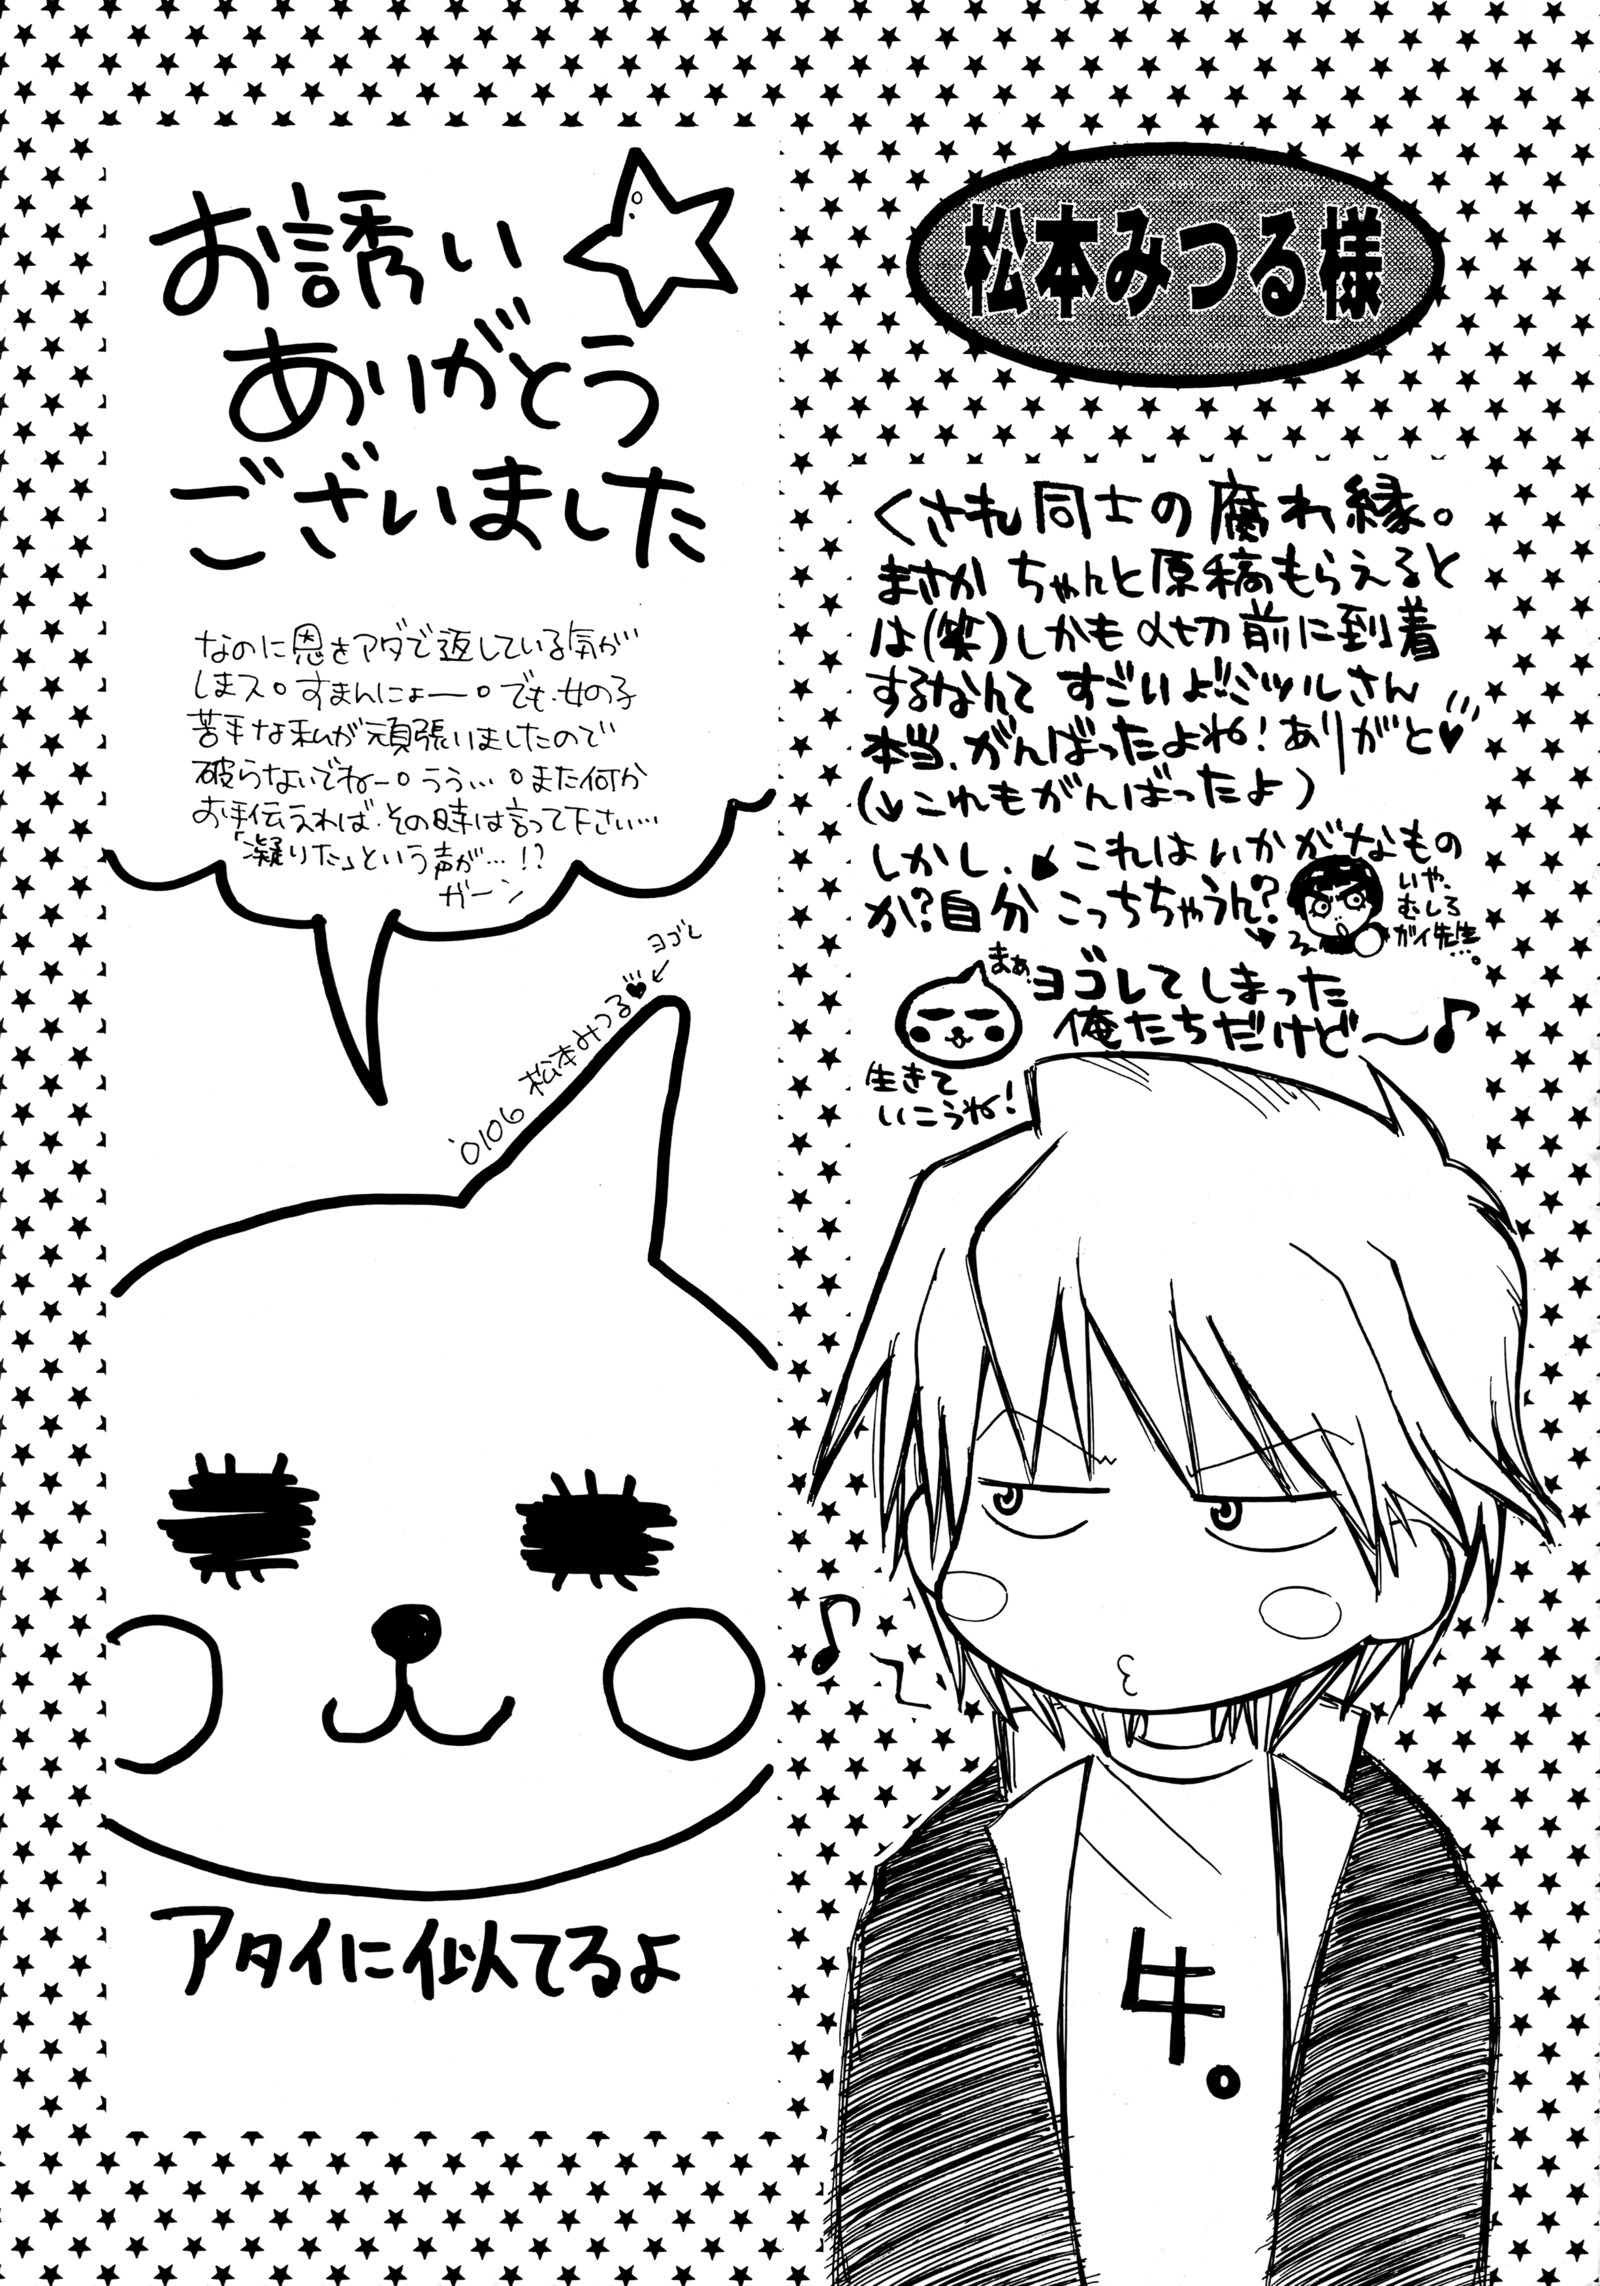 松本みつる様
くされ同士の腐れ縁。
まさか ちゃんと原稿もらえると
は(笑)しかも〆切前に到着
するなんて すごいよ!!ミツルさん
本当、がんばったよね!ありがと♥
(↓これもがんばったよ)
しかし、これはいかがなもの
か?自分 こっちちゃうん?
いや、
むしろ
ガイ先生…。
まぁ、ヨゴレてしまった
俺たちだけど〜♪
生きて
いこうね!
♪
牛。
お誘い☆
ありがとう
ございました
なのに恩をアダで返している気が
しまス。すまんにょー。でも、女の子
苦手な私が頑張いましたので
破らないでねー。うぅ…。また何か
お手伝えれば、その時は言って下さい…
「凝りた」という声が…!?
ガーン
'0106 松本みつる♥←ヨゴレ
アタイに似てるよ